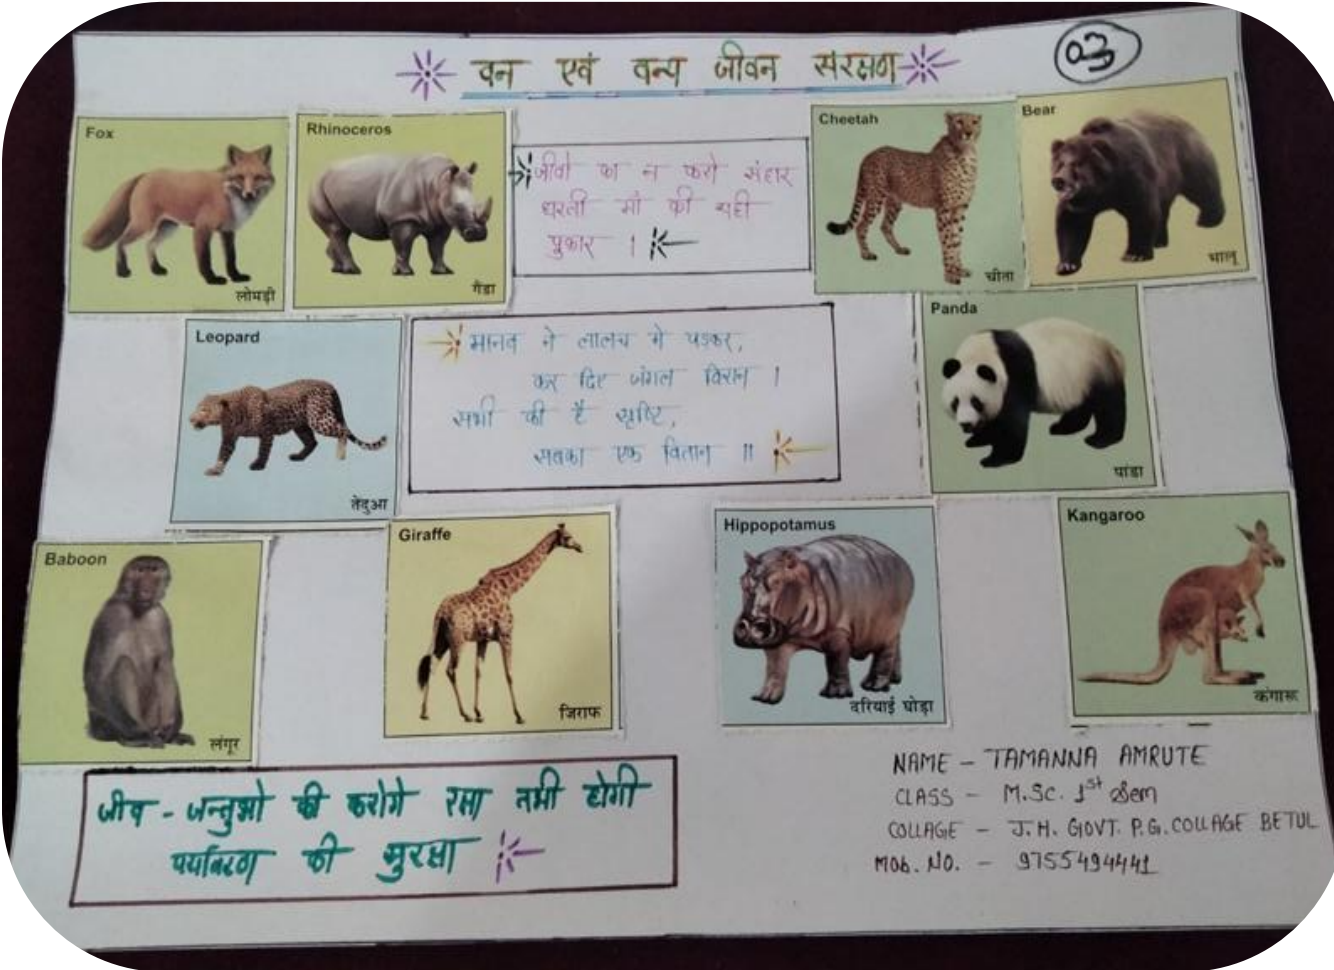 वन एवं वन्य जीवन संरक्षण
03
Fox
लोमड़ी
Rhinoceros
गैंडा
जीवो का न करो संहार
धरती माँ की यही
पुकार ।
Cheetah
चीता
Bear
भालू
Leopard
तेंदुआ
मानव ने लालच मे पड़कर,
कर दिए जंगल विरान ।
सभी की है सृष्टि,
सबका एक वितान ॥
Panda
पांडा
Baboon
लंगूर
Giraffe
जिराफ
Hippopotamus
दरियाई घोड़ा
Kangaroo
कंगारू
जीव - जन्तुओ की करोगे रक्षा तभी होगी
पर्यावरण की सुरक्षा
NAME - TAMANNA AMRUTE
CLASS - M.Sc. 1st Sem
COLLAGE - J.H. GOVT. P.G. COLLAGE BETUL
MOB. NO. - 9755494441